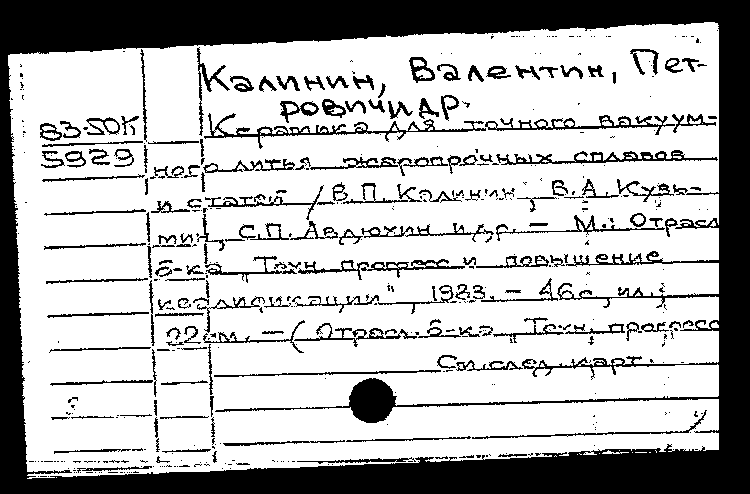 Калинин, Валентин, Пет-
рович и др.
83-50К
5929
Керамика для точного вакуум-
ного литья жаропрочных сплавов
и статей / В.П. Калинин, В.А. Кузь-
мин, С.П. Авдюхин и др. — М.: Отрасл
б-ка „Техн. прогресс и повышение
квалификации", 1983. — 46 с., ил.;
22 см. — (Отрасл. б-ка „Техн. прогресс
См. след. карт.